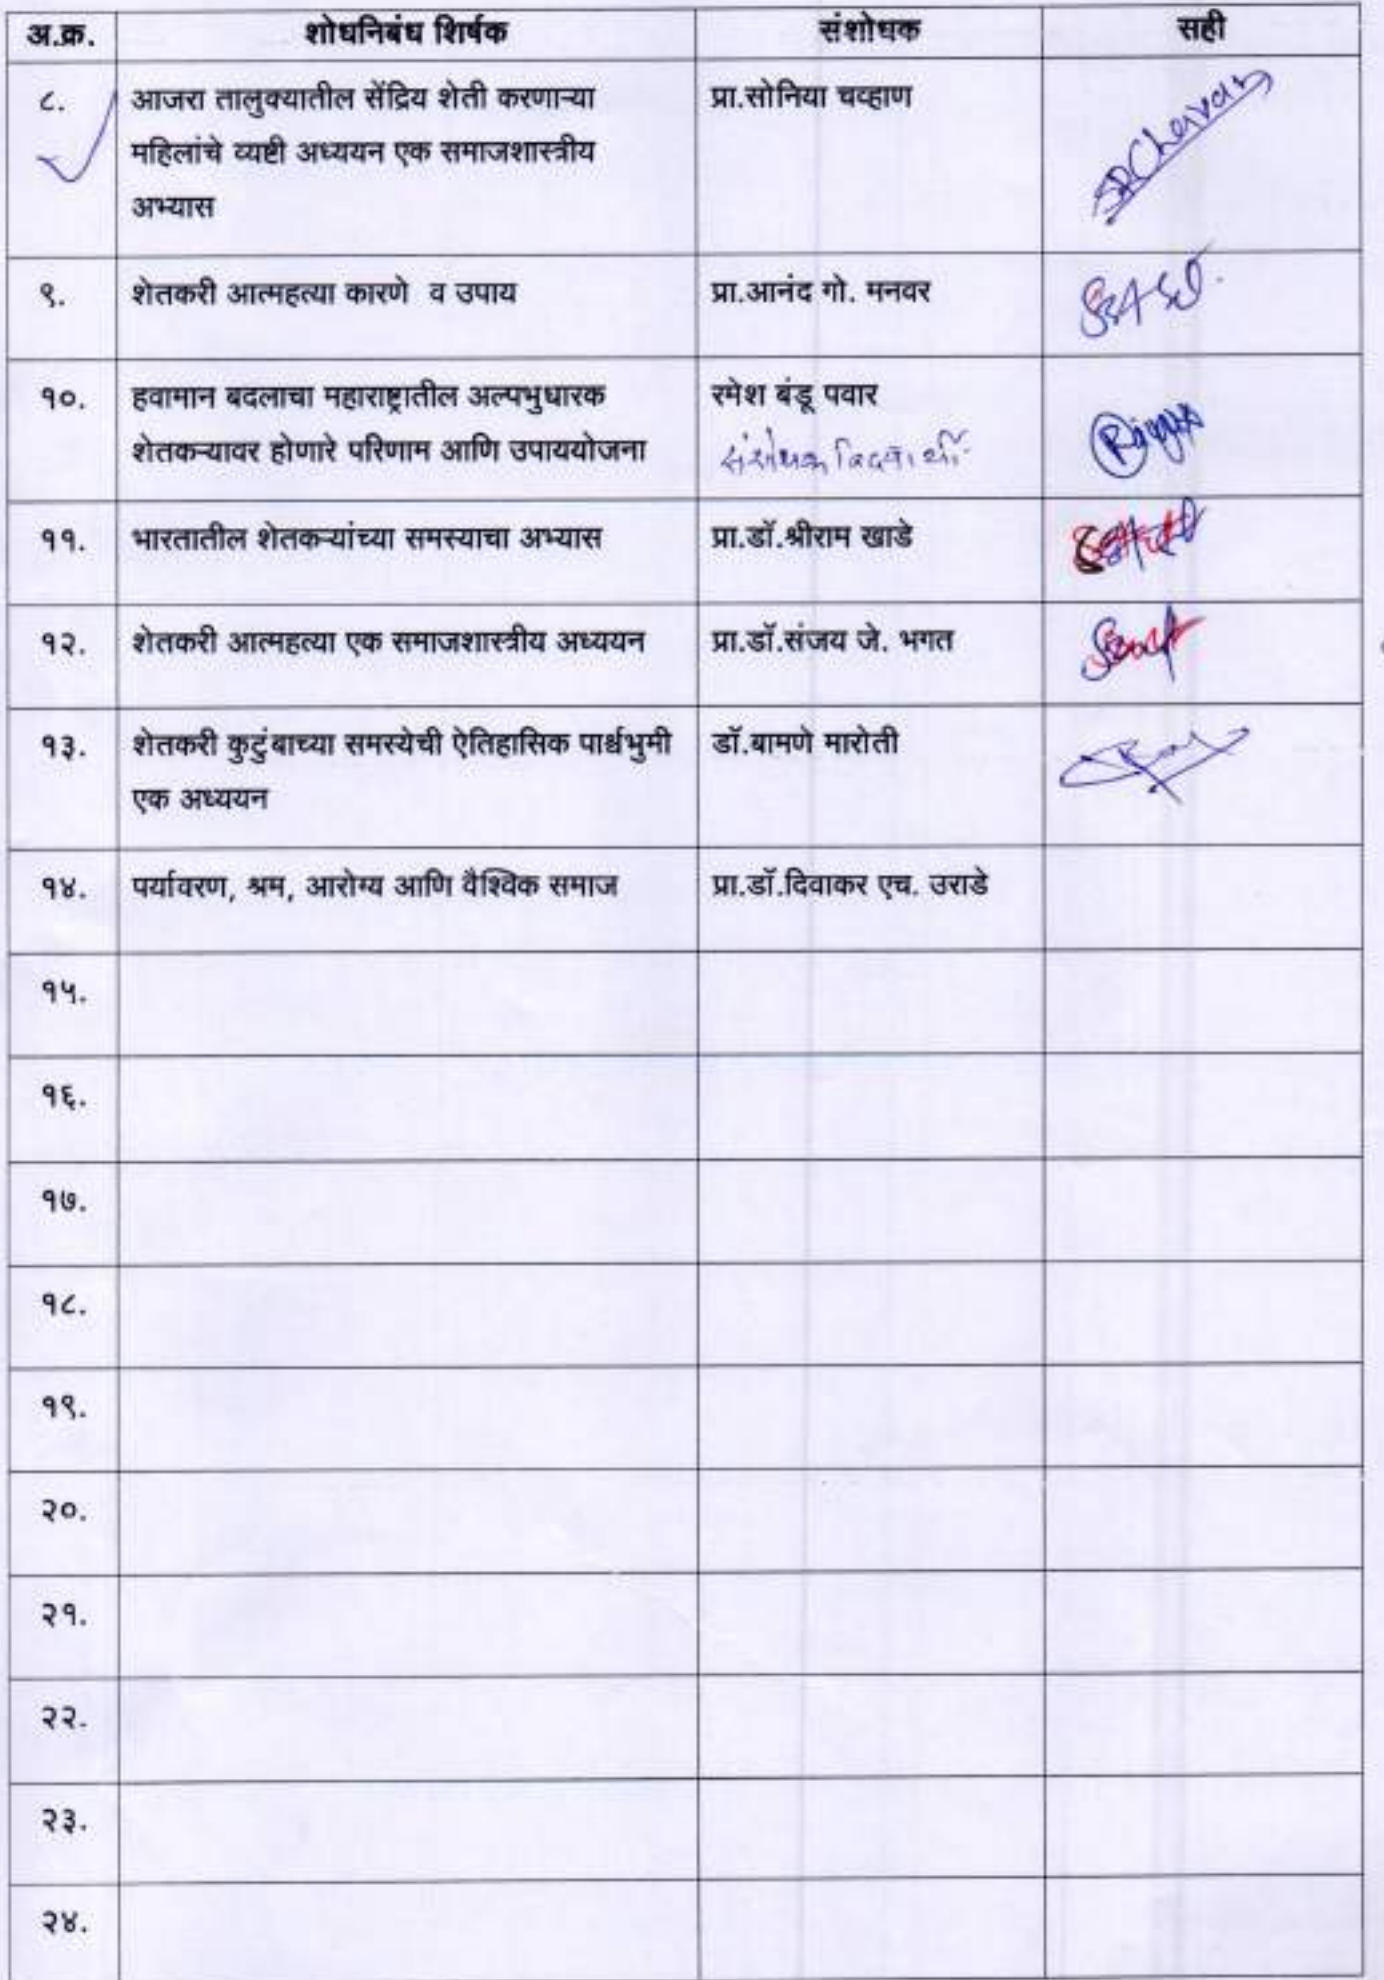 अ.क्र. शोधनिबंध शिर्षक संशोधक सही
८. आजरा तालुक्यातील सेंद्रिय शेती करणाऱ्या प्रा.सोनिया चव्हाण
महिलांचे व्यष्टी अध्ययन एक समाजशास्त्रीय
अभ्यास
९. शेतकरी आत्महत्या कारणे व उपाय प्रा.आनंद गो. मनवर
१०. हवामान बदलाचा महाराष्ट्रातील अल्पभुधारक रमेश बंडू पवार
शेतकऱ्यावर होणारे परिणाम आणि उपाययोजना संशोधक विद्यार्थी
११. भारतातील शेतकऱ्यांच्या समस्याचा अभ्यास प्रा.डॉ.श्रीराम खाडे
१२. शेतकरी आत्महत्या एक समाजशास्त्रीय अध्ययन प्रा.डॉ.संजय जे. भगत
१३. शेतकरी कुटुंबाच्या समस्येची ऐतिहासिक पार्श्वभुमी डॉ.बामणे मारोती
एक अध्ययन
१४. पर्यावरण, श्रम, आरोग्य आणि वैश्विक समाज प्रा.डॉ.दिवाकर एच. उराडे
१५.
१६.
१७.
१८.
१९.
२०.
२१.
२२.
२३.
२४.